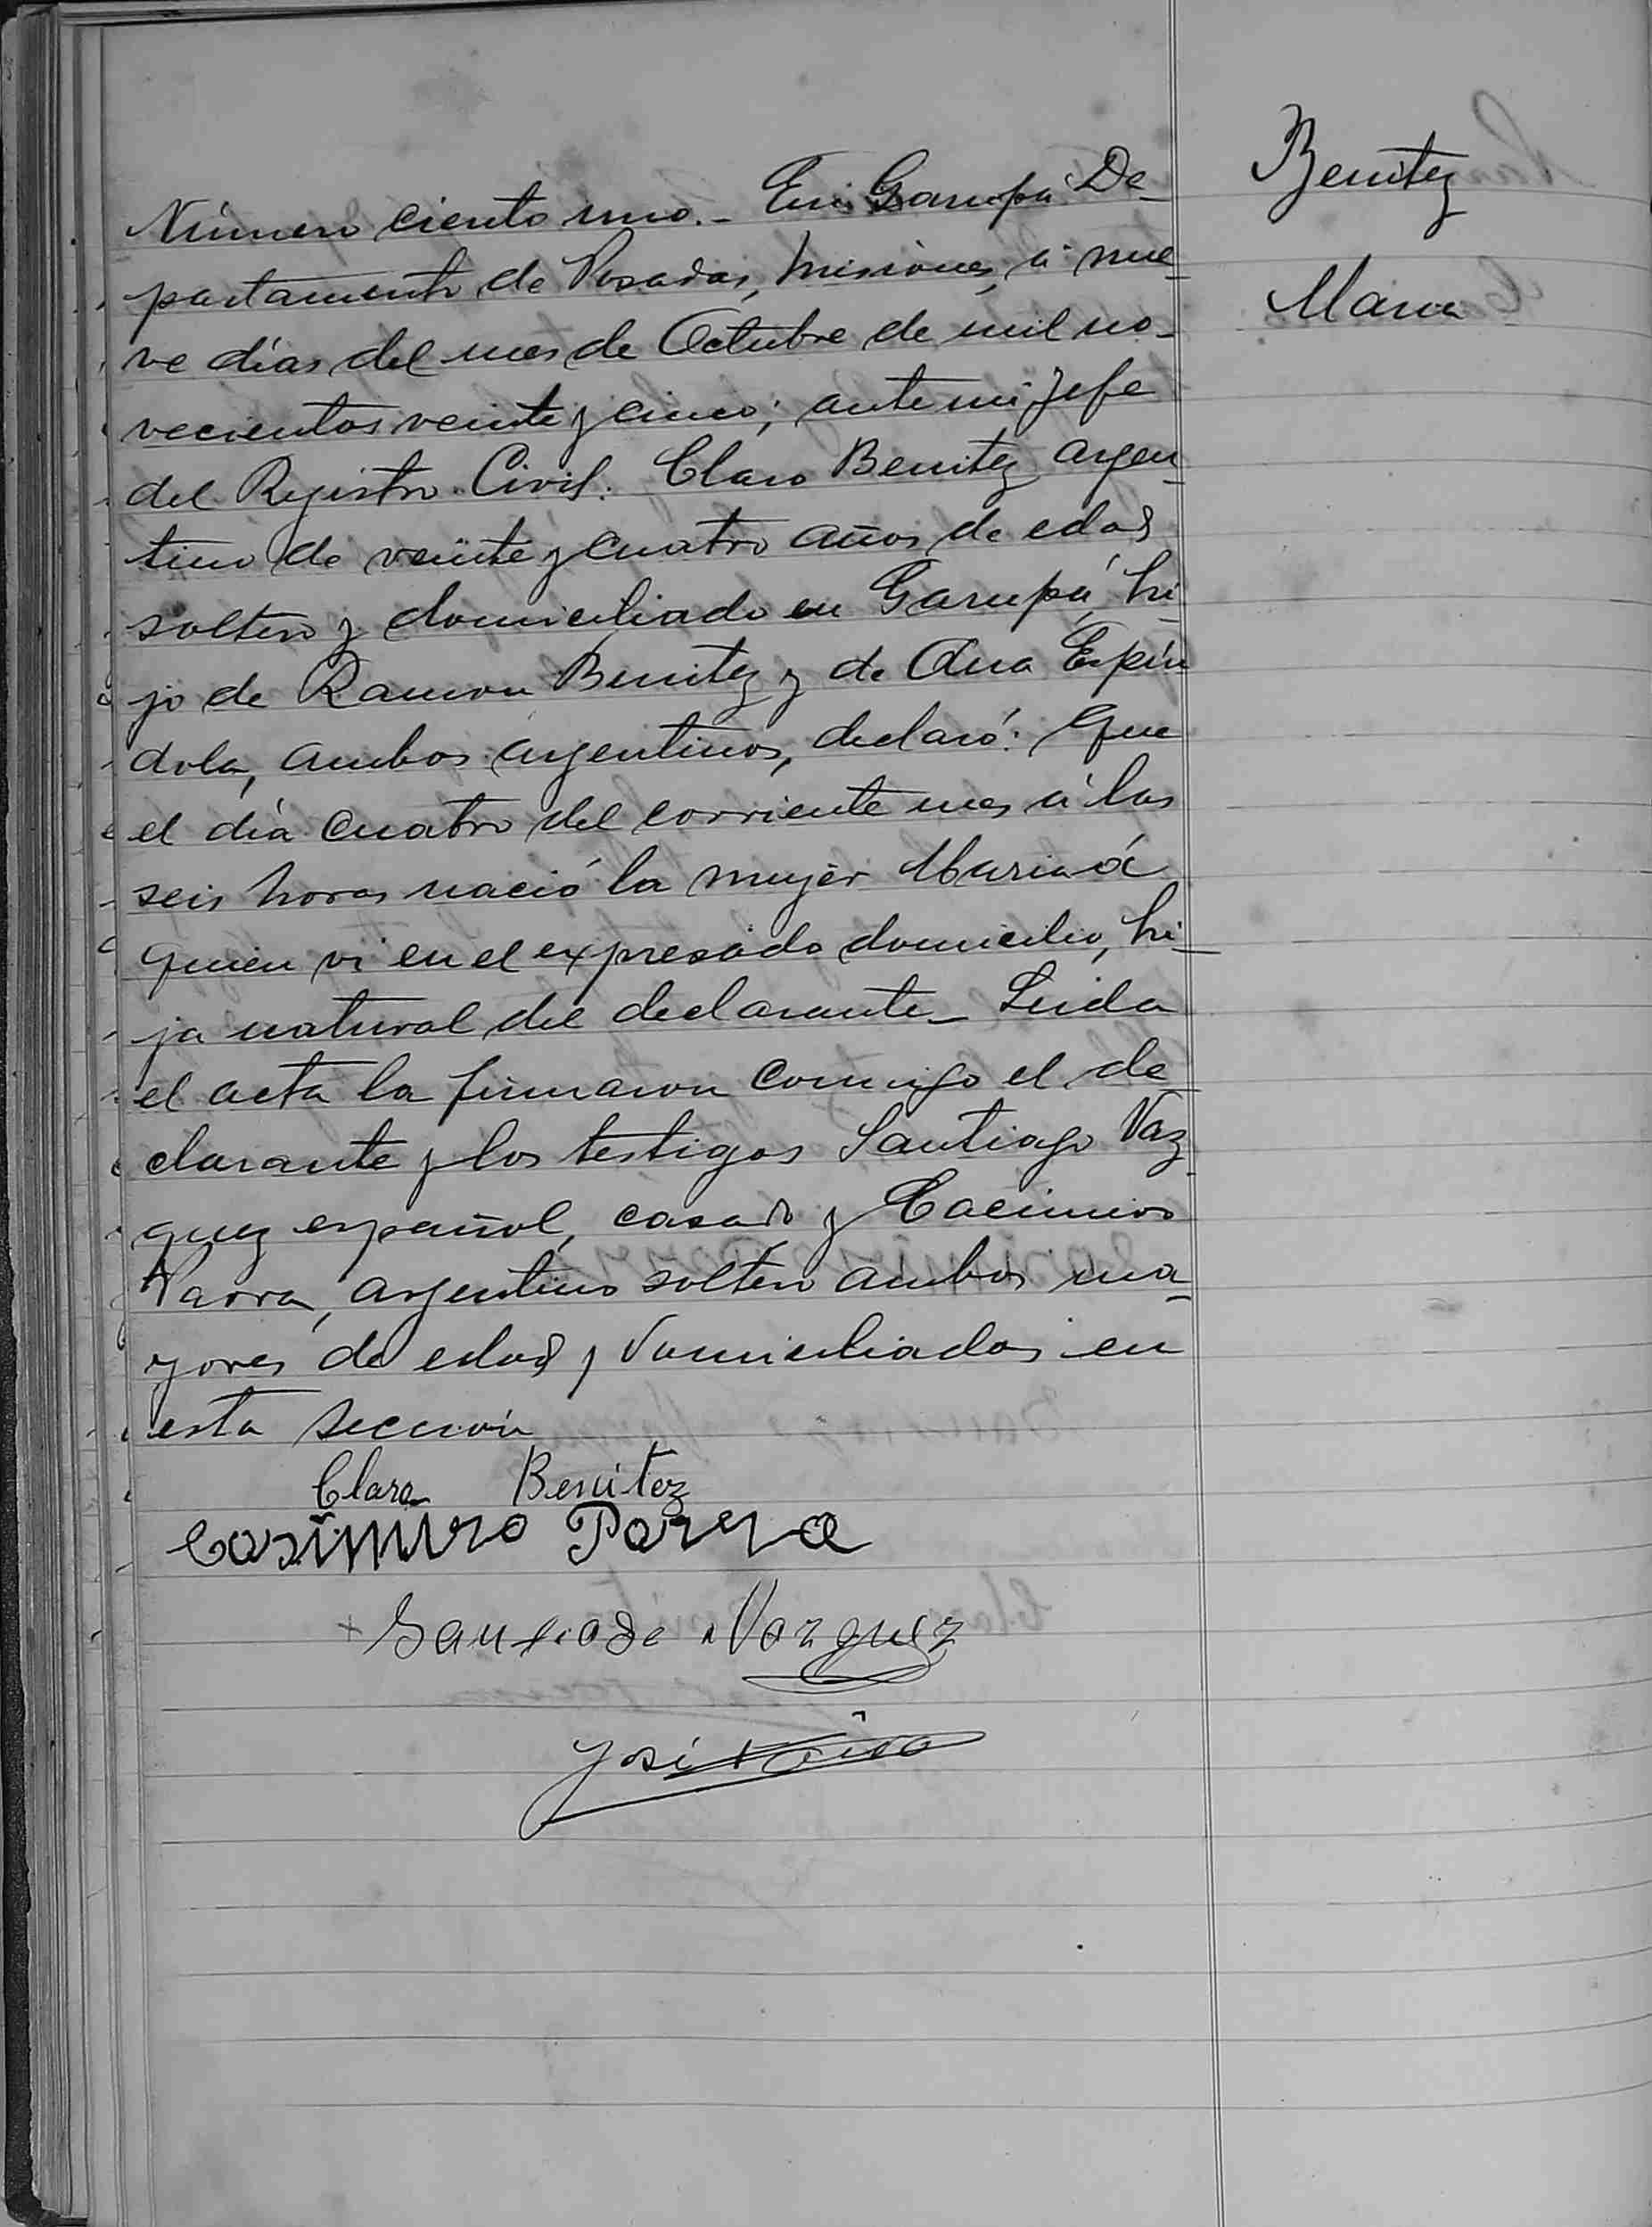 Benitez
Maria
Número ciento uno.- En Garupá De-
partamento de Posadas, Misiones, á nue-
ve días del mes de Octubre de mil no-
vecientos veinte y cinco; ante mi Jefe
del Registro Civil. Claro Benitez argen-
tino de veinte y cuatro años de edad
soltero y domiciliado en Garupá, hi-
jo de Ramon Benitez y de Ana Espín-
dola, ambos argentinos, declaró: Que
el día cuatro del corriente mes á las
seis horas nació la mujer Maria á
quien vi en el expresado domicilio, hi-
ja natural del declarante_ Leida
el acta la firmaron conmigo el de-
clarante y los testigos Santiago Vaz-
quez español, casado y Cacimiro
Parra, argentino soltero ambos ma-
yores de edad y domiciliados en
esta sección
Claro Benitez
Casimiro Parra
Santiago Vazquez
José